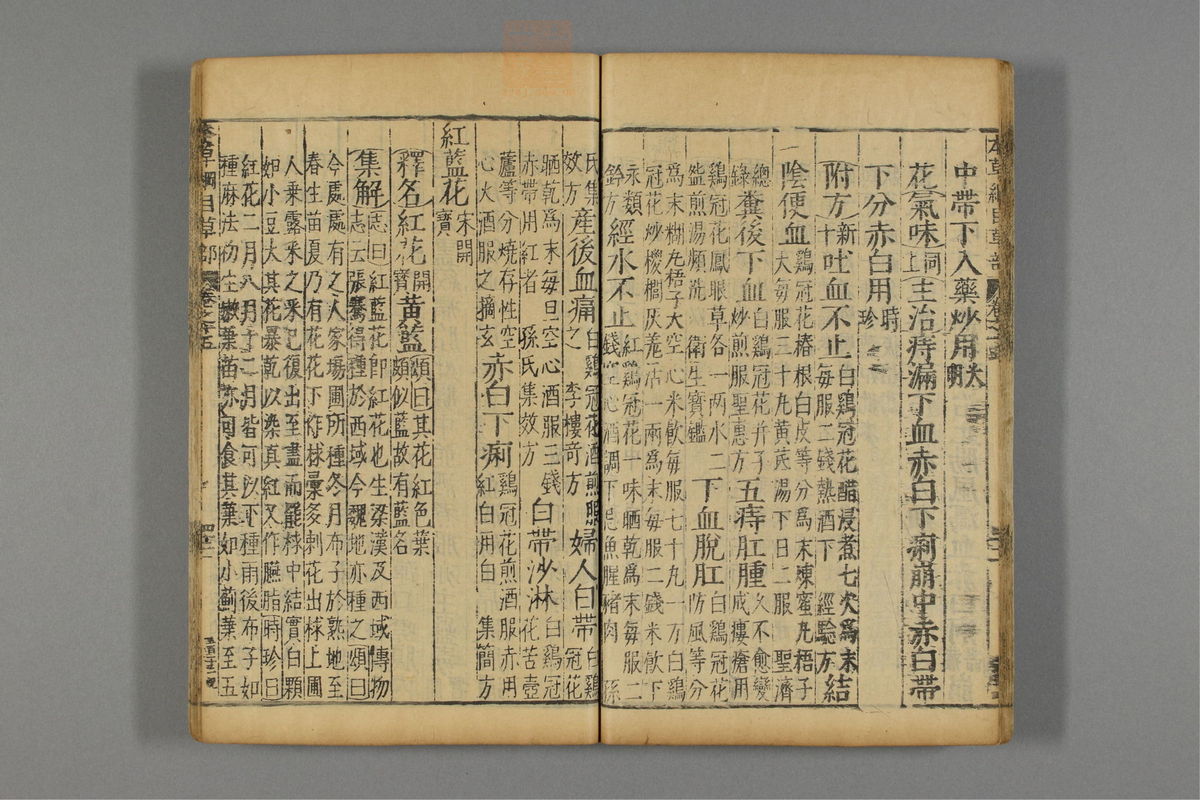 本草綱目草部
中帶下入藥炒用大明
花氣味同上主治痔漏下血赤白下痢崩中赤白帶
下分赤白用時珍
附方新十吐血不止白鷄冠花醋浸煮七次爲末
每服二錢熱酒下 經驗方結
陰便血鷄冠花椿根白皮等分爲末煉蜜丸梧子
大每服三十丸黄芪湯下日二服 聖濟
總
錄糞後下血白鷄冠花并子
炒煎服聖惠方五痔肛腫久不愈變
成瘻瘡用
鷄冠花鳳眼草各一兩水二
盌煎湯頻洗 衛生寶鑑下血脫肛白鷄冠花
防風等分
爲末糊丸梧子大空心米飲每服七十丸一方白鷄
冠花炒椶櫚灰羌活一兩爲末每服二錢米飲下
永類
鈐方經水不止紅鷄冠花一味晒乾爲末每服二
錢空心酒調下忌魚腥豬肉 孫
氏集
效方產後血痛白鷄冠花酒煎服
之 李樓奇方婦人白帶白鷄
冠花
晒乾爲末每旦空心酒服三錢
赤帶用紅者 孫氏集效方白帶沙淋白鷄冠
花苦壺
蘆等分燒存性空
心火酒服之摘玄赤白下痢鷄冠花煎酒服赤用
紅白用白 集簡方
紅藍花宋開
寶
釋名紅花開
寶黄藍頌曰其花紅色葉
頗似藍故有藍名
集解志曰紅藍花卽紅花也生梁漢及西域博物
志云張騫得種於西域今魏地亦種之頌曰
今處處有之人家場圃所種冬月布子於熟地至
春生苗夏乃有花花下作梂彙多刺花出梂上圃
人乗露采之采已復出至盡而罷梂中結實白顆
如小豆大其花暴乾以染真紅又作臙脂時珍曰
紅花二月八月十二月皆可以下種雨後布子如
種麻法初生嫩葉苗亦可食其葉如小薊葉至五
本草綱目草部 卷之十五